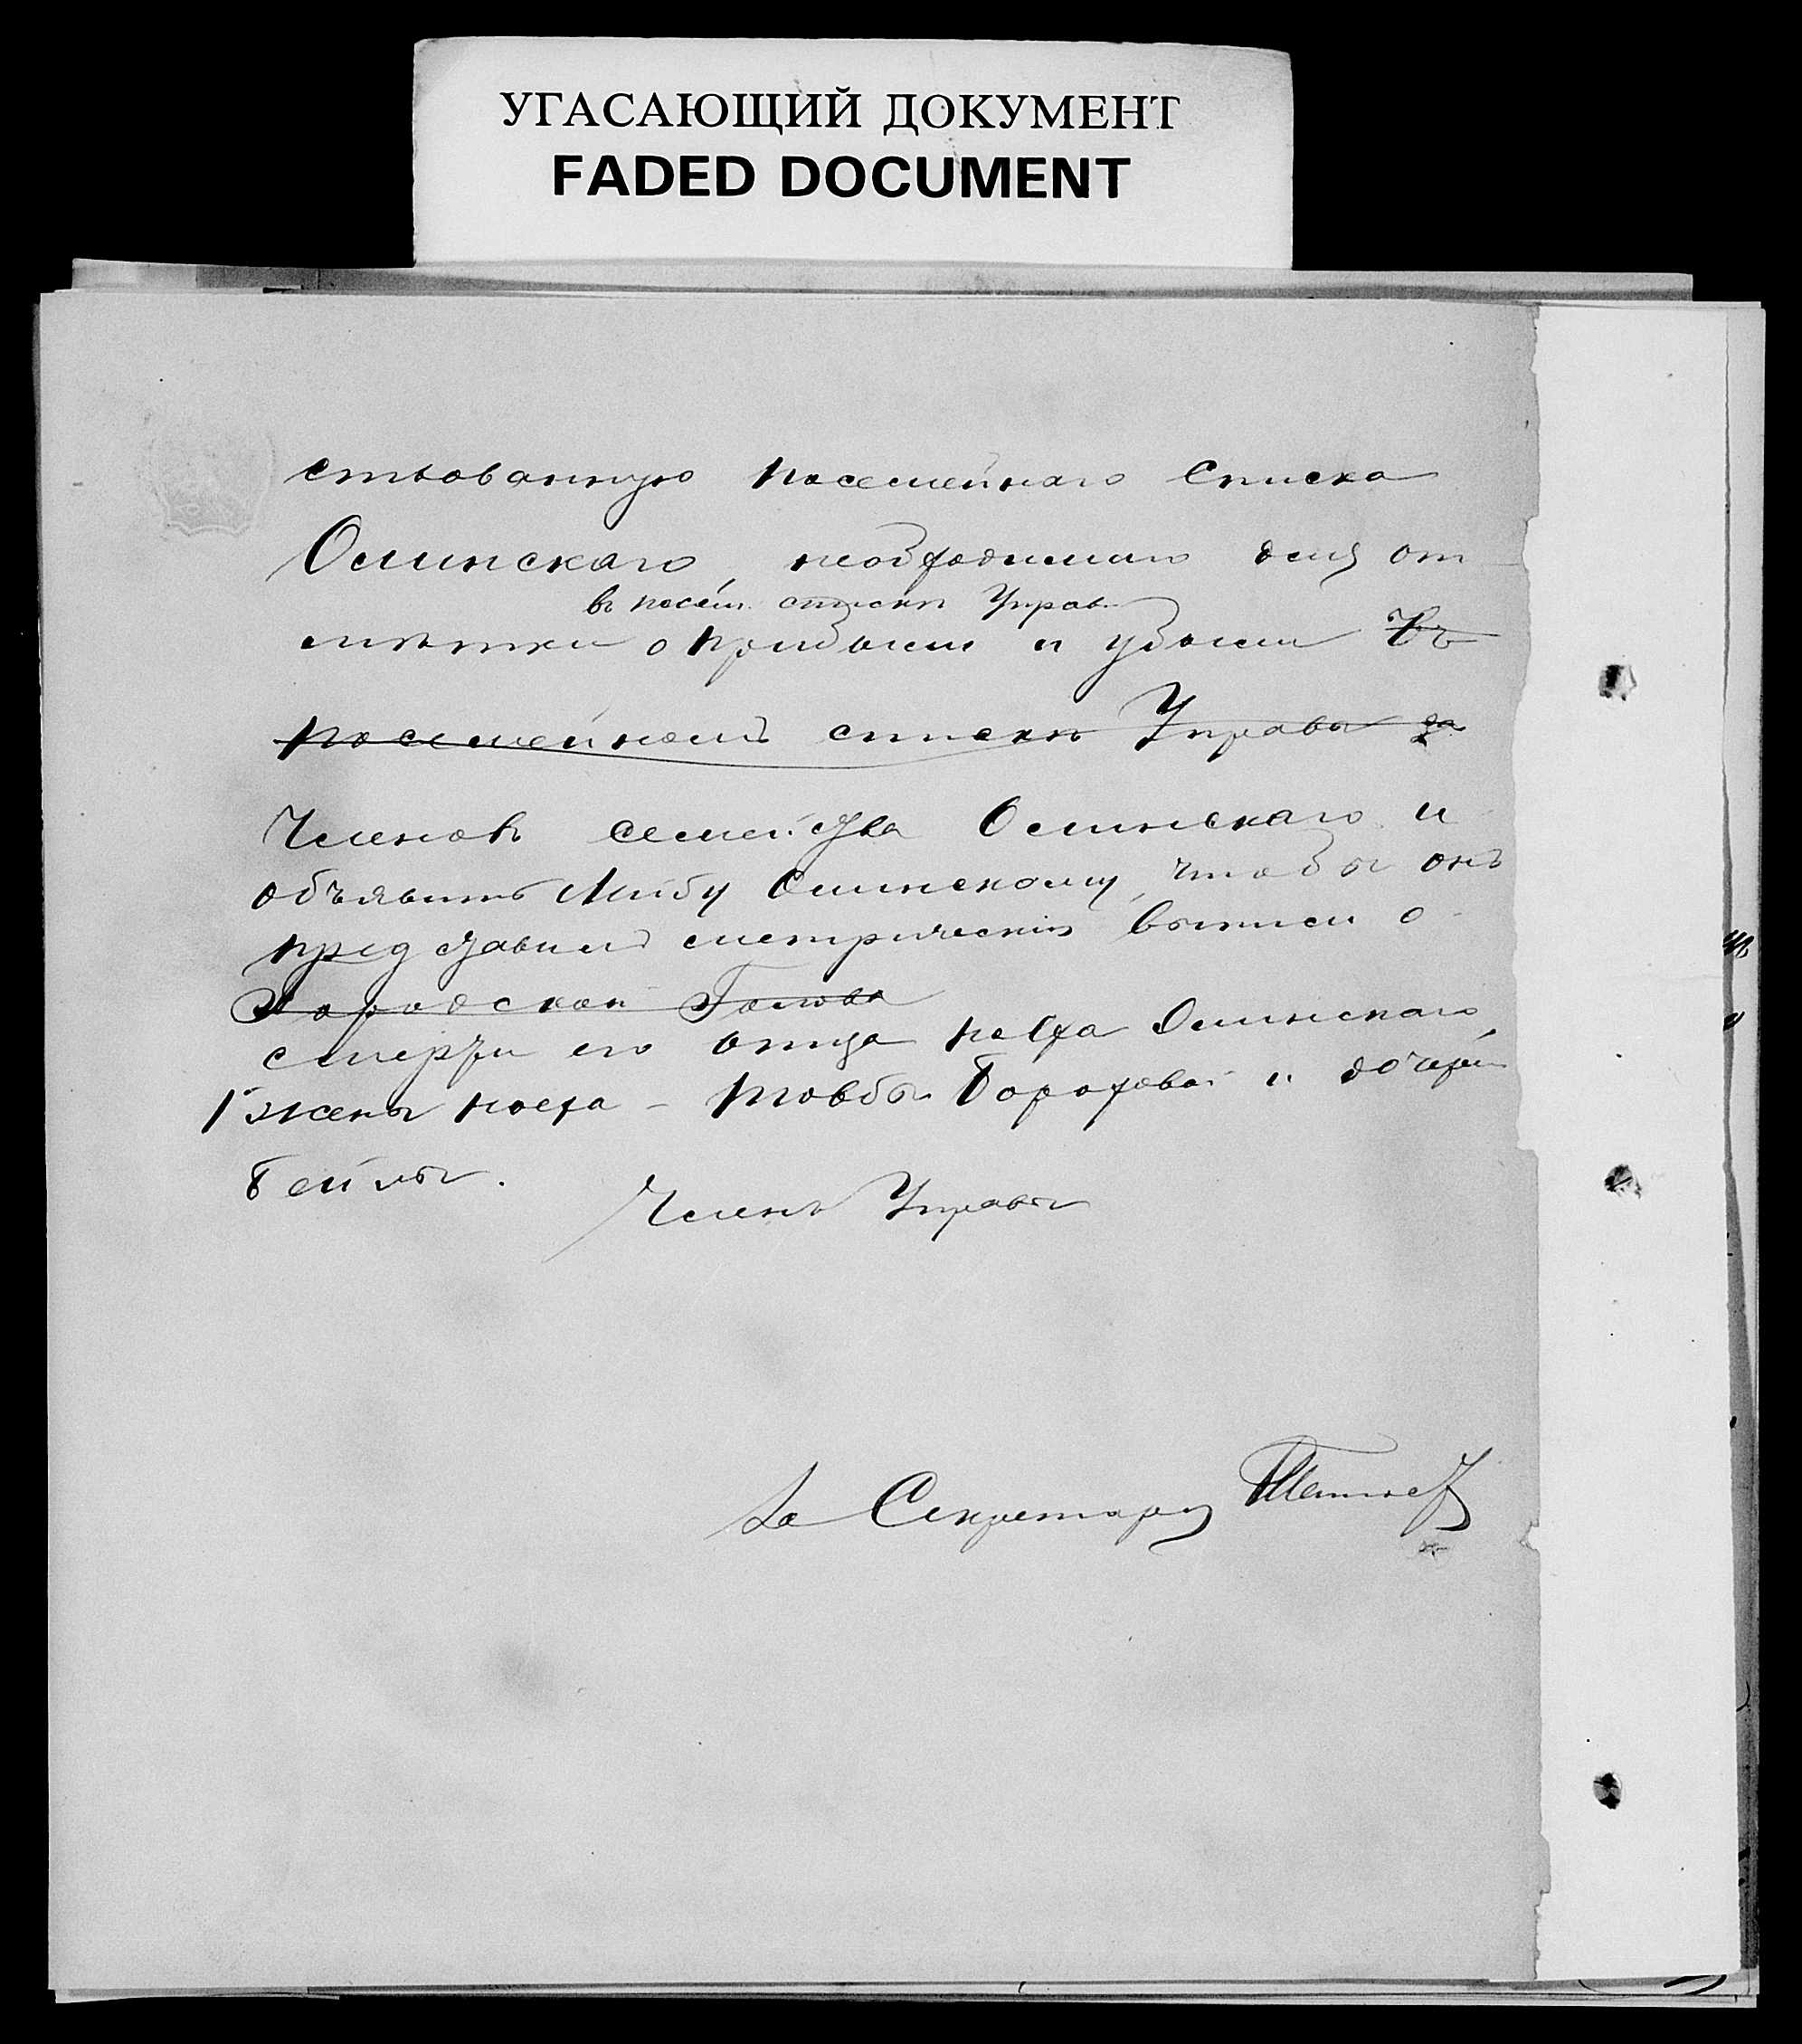 УГАСАЮЩИЙ ДОКУМЕНТ
FADED DOCUMENT
ствованную посемейнаго списка
Олинскаго, необходимаго для от
въ посем. списки Управ.
мѣтки о прибыли и убыли въ
посемейномъ списки Управы за
Членовъ семейства Олинскаго и
объявить Олинскому, чтобы онъ
представилъ метрическія выписи о
Городской Голова
смерти его отца Олинскаго,
жены – Товбы Бороховой и дочери
Бейлы.
Членъ Управы
За Секретаря